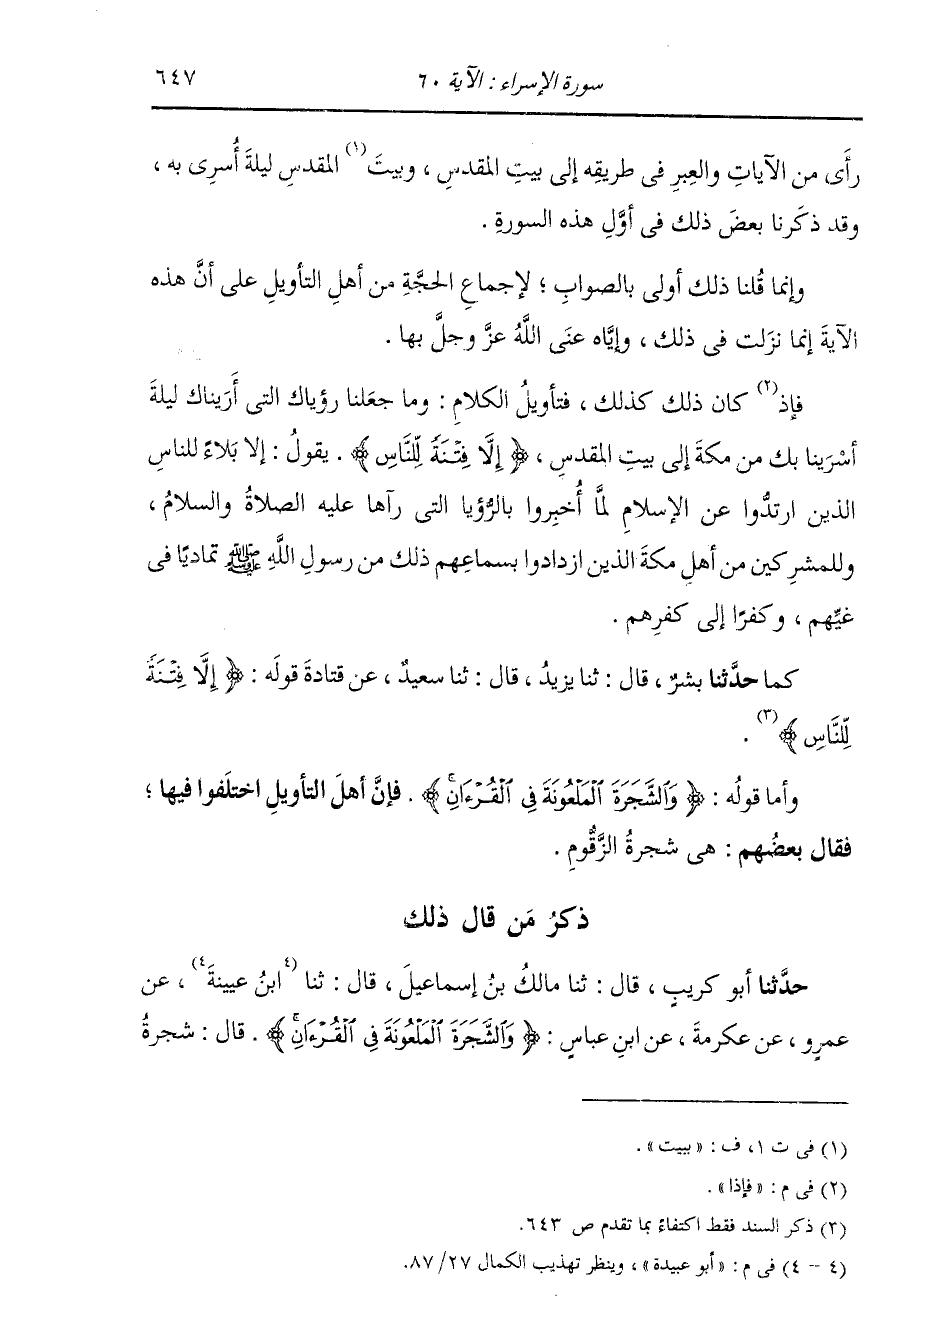 سورة الإسراء : الآية ٦٠ ٦٤٧
رأَى من الآياتِ والعِبرِ فى طريقِه إلى بيتِ المقدسِ ، وبيتَ(١) المقدسِ ليلةَ أُسرِى به ،
وقد ذكَرنا بعضَ ذلك فى أوَّلِ هذه السورةِ .
وإنما قُلنا ذلك أولى بالصوابِ ؛ لإجماعِ الحجَّةِ من أهلِ التأويلِ على أنَّ هذه
الآيةَ إنما نزَلت فى ذلك ، وإيَّاه عنَى اللَّهُ عزَّ وجلَّ بها .
فإذ(٢) كان ذلك كذلك ، فتأويلُ الكلامِ : وما جعَلنا رؤياك التى أَرَيناك ليلةَ
أسْرَينا بك من مكةَ إلى بيتِ المقدسِ ، ﴿ إِلَّا فِتْنَةً لِّلنَّاسِ ﴾ . يقولُ : إلا بَلاءً للناسِ
الذين ارتدُّوا عن الإسلامِ لمَّا أُخبِروا بالرُّؤيا التى رآها عليه الصلاةُ والسلامُ ،
وللمشرِكين من أهلِ مكةَ الذين ازدادوا بسماعِهم ذلك من رسولِ اللَّهِ ﷺ تماديًا فى
غيِّهم ، وكفرًا إلى كفرِهم .
كما حدَّثنا بشرٌ ، قال : ثنا يزيدُ ، قال : ثنا سعيدٌ ، عن قتادةَ قولَه : ﴿ إِلَّا فِتْنَةً
لِّلنَّاسِ ﴾(٣) .
وأما قولُه : ﴿ وَٱلشَّجَرَةَ ٱلْمَلْعُونَةَ فِى ٱلْقُرْءَانِۚ ﴾ . فإنَّ أهلَ التأويلِ اختلَفوا فيها ؛
فقال بعضُهم : هى شجرةُ الزَّقُّومِ .
ذكرُ مَن قال ذلك
حدَّثنا أبو كريبٍ ، قال : ثنا مالكُ بنُ إسماعيلَ ، قال : ثنا (٤ابنُ عيينةَ٤) ، عن
عمرٍو ، عن عكرمةَ ، عن ابنِ عباسٍ : ﴿ وَٱلشَّجَرَةَ ٱلْمَلْعُونَةَ فِى ٱلْقُرْءَانِۚ ﴾ . قال : شجرةُ
(١) فى ت ١، ف : « ببيت » .
(٢) فى م : « فإذا » .
(٣) ذكر السند فقط اكتفاءً بما تقدم ص ٦٤٣.
(٤ - ٤) فى م : « أبو عبيدة » ، وينظر تهذيب الكمال ٢٧/ ٨٧.